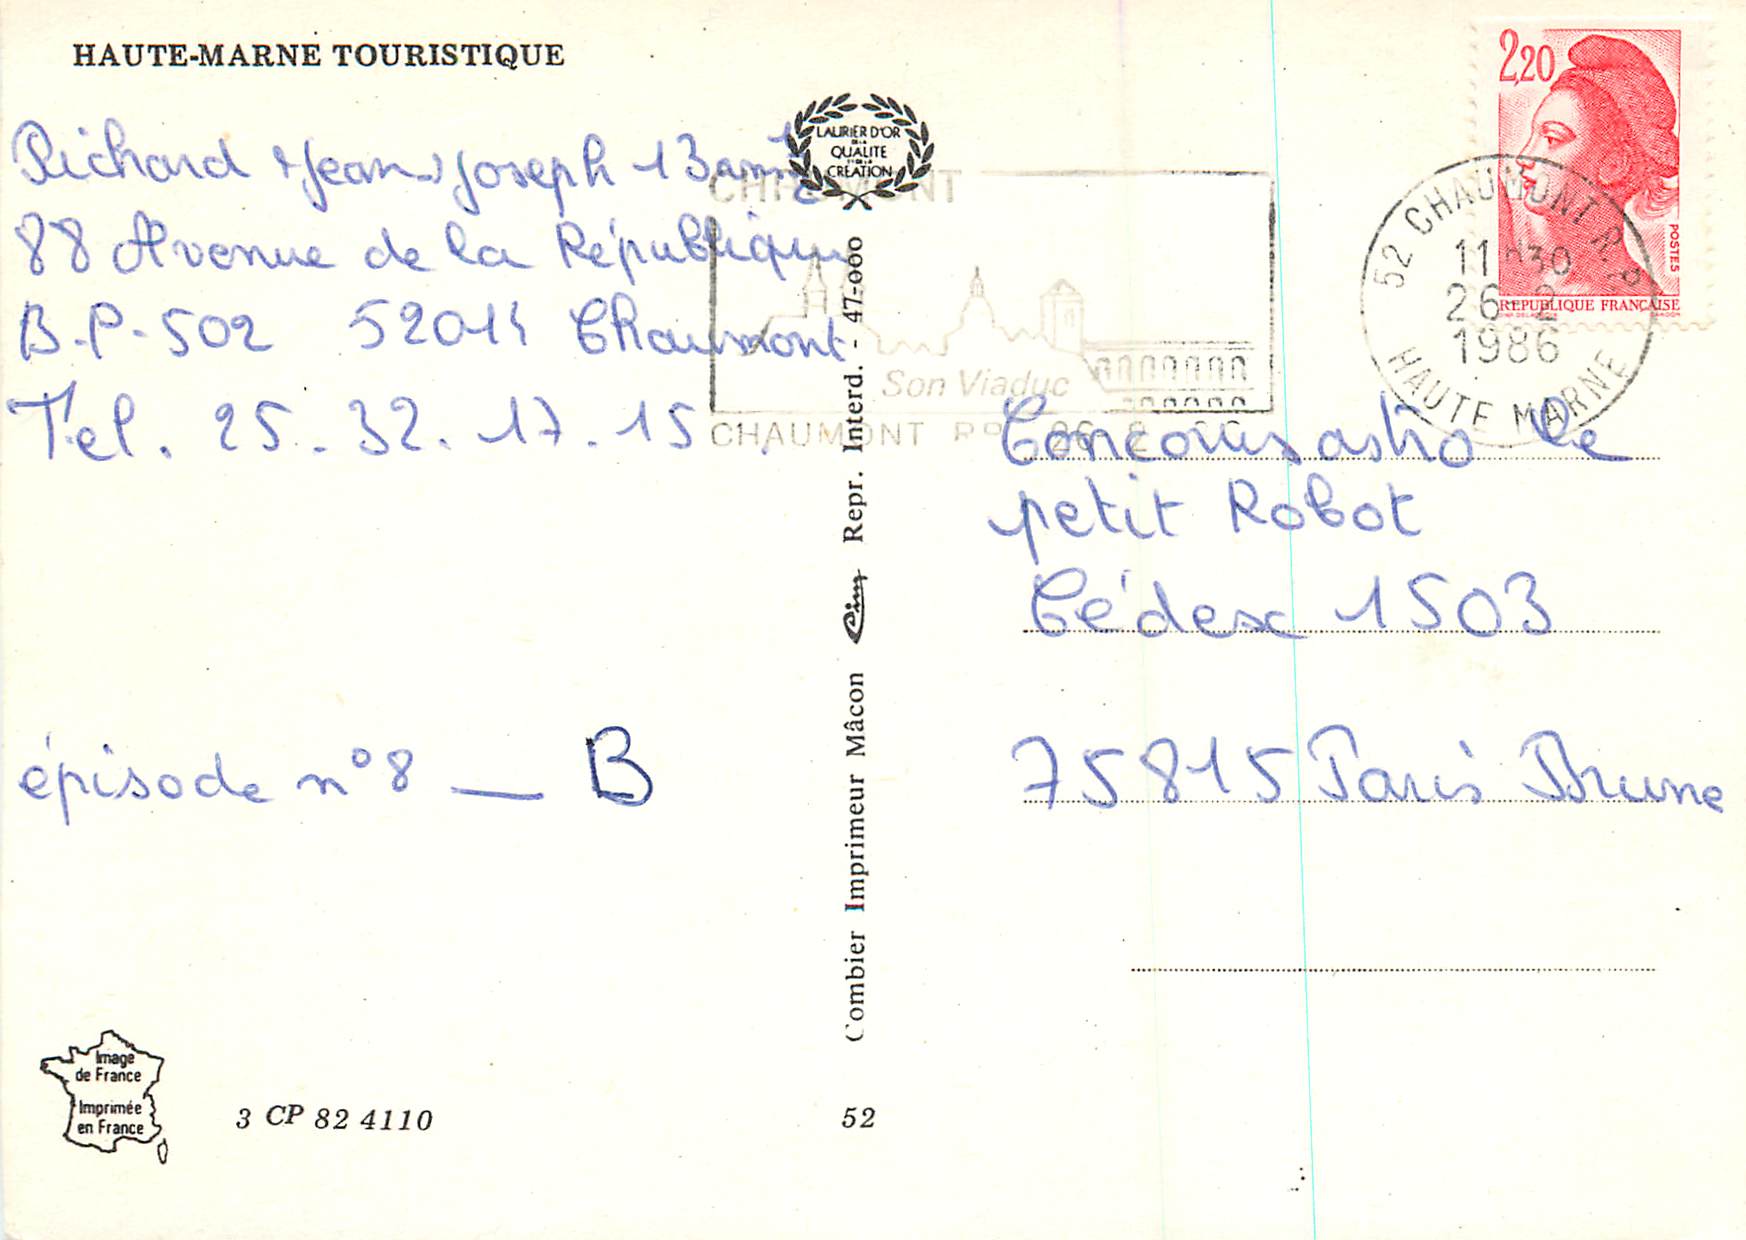 HAUTE-MARNE TOURISTIQUE
Richard Jean-Joseph
88 Avenue de la République
B.P-502 52011 Chaumont
Tel. 25.32.17.15
épisode n°8 — B
Image
de France
Imprimée
en France
3 CP 82 4110
LAURIER D'OR
DE LA
QUALITE
ET DE LA
CREATION
Combier Imprimeur Mâcon Cim Repr. Interd. - 47-000
52
CHAUMONT
Son Viaduc
CHAUMONT RP 26-2
2,20
POSTES
REPUBLIQUE FRANÇAISE
52 CHAUMONT R.P.
11H30
26-2
1986
HAUTE MARNE
Concours astro le
petit Robot
Cédex 1503
75815 Paris Brune